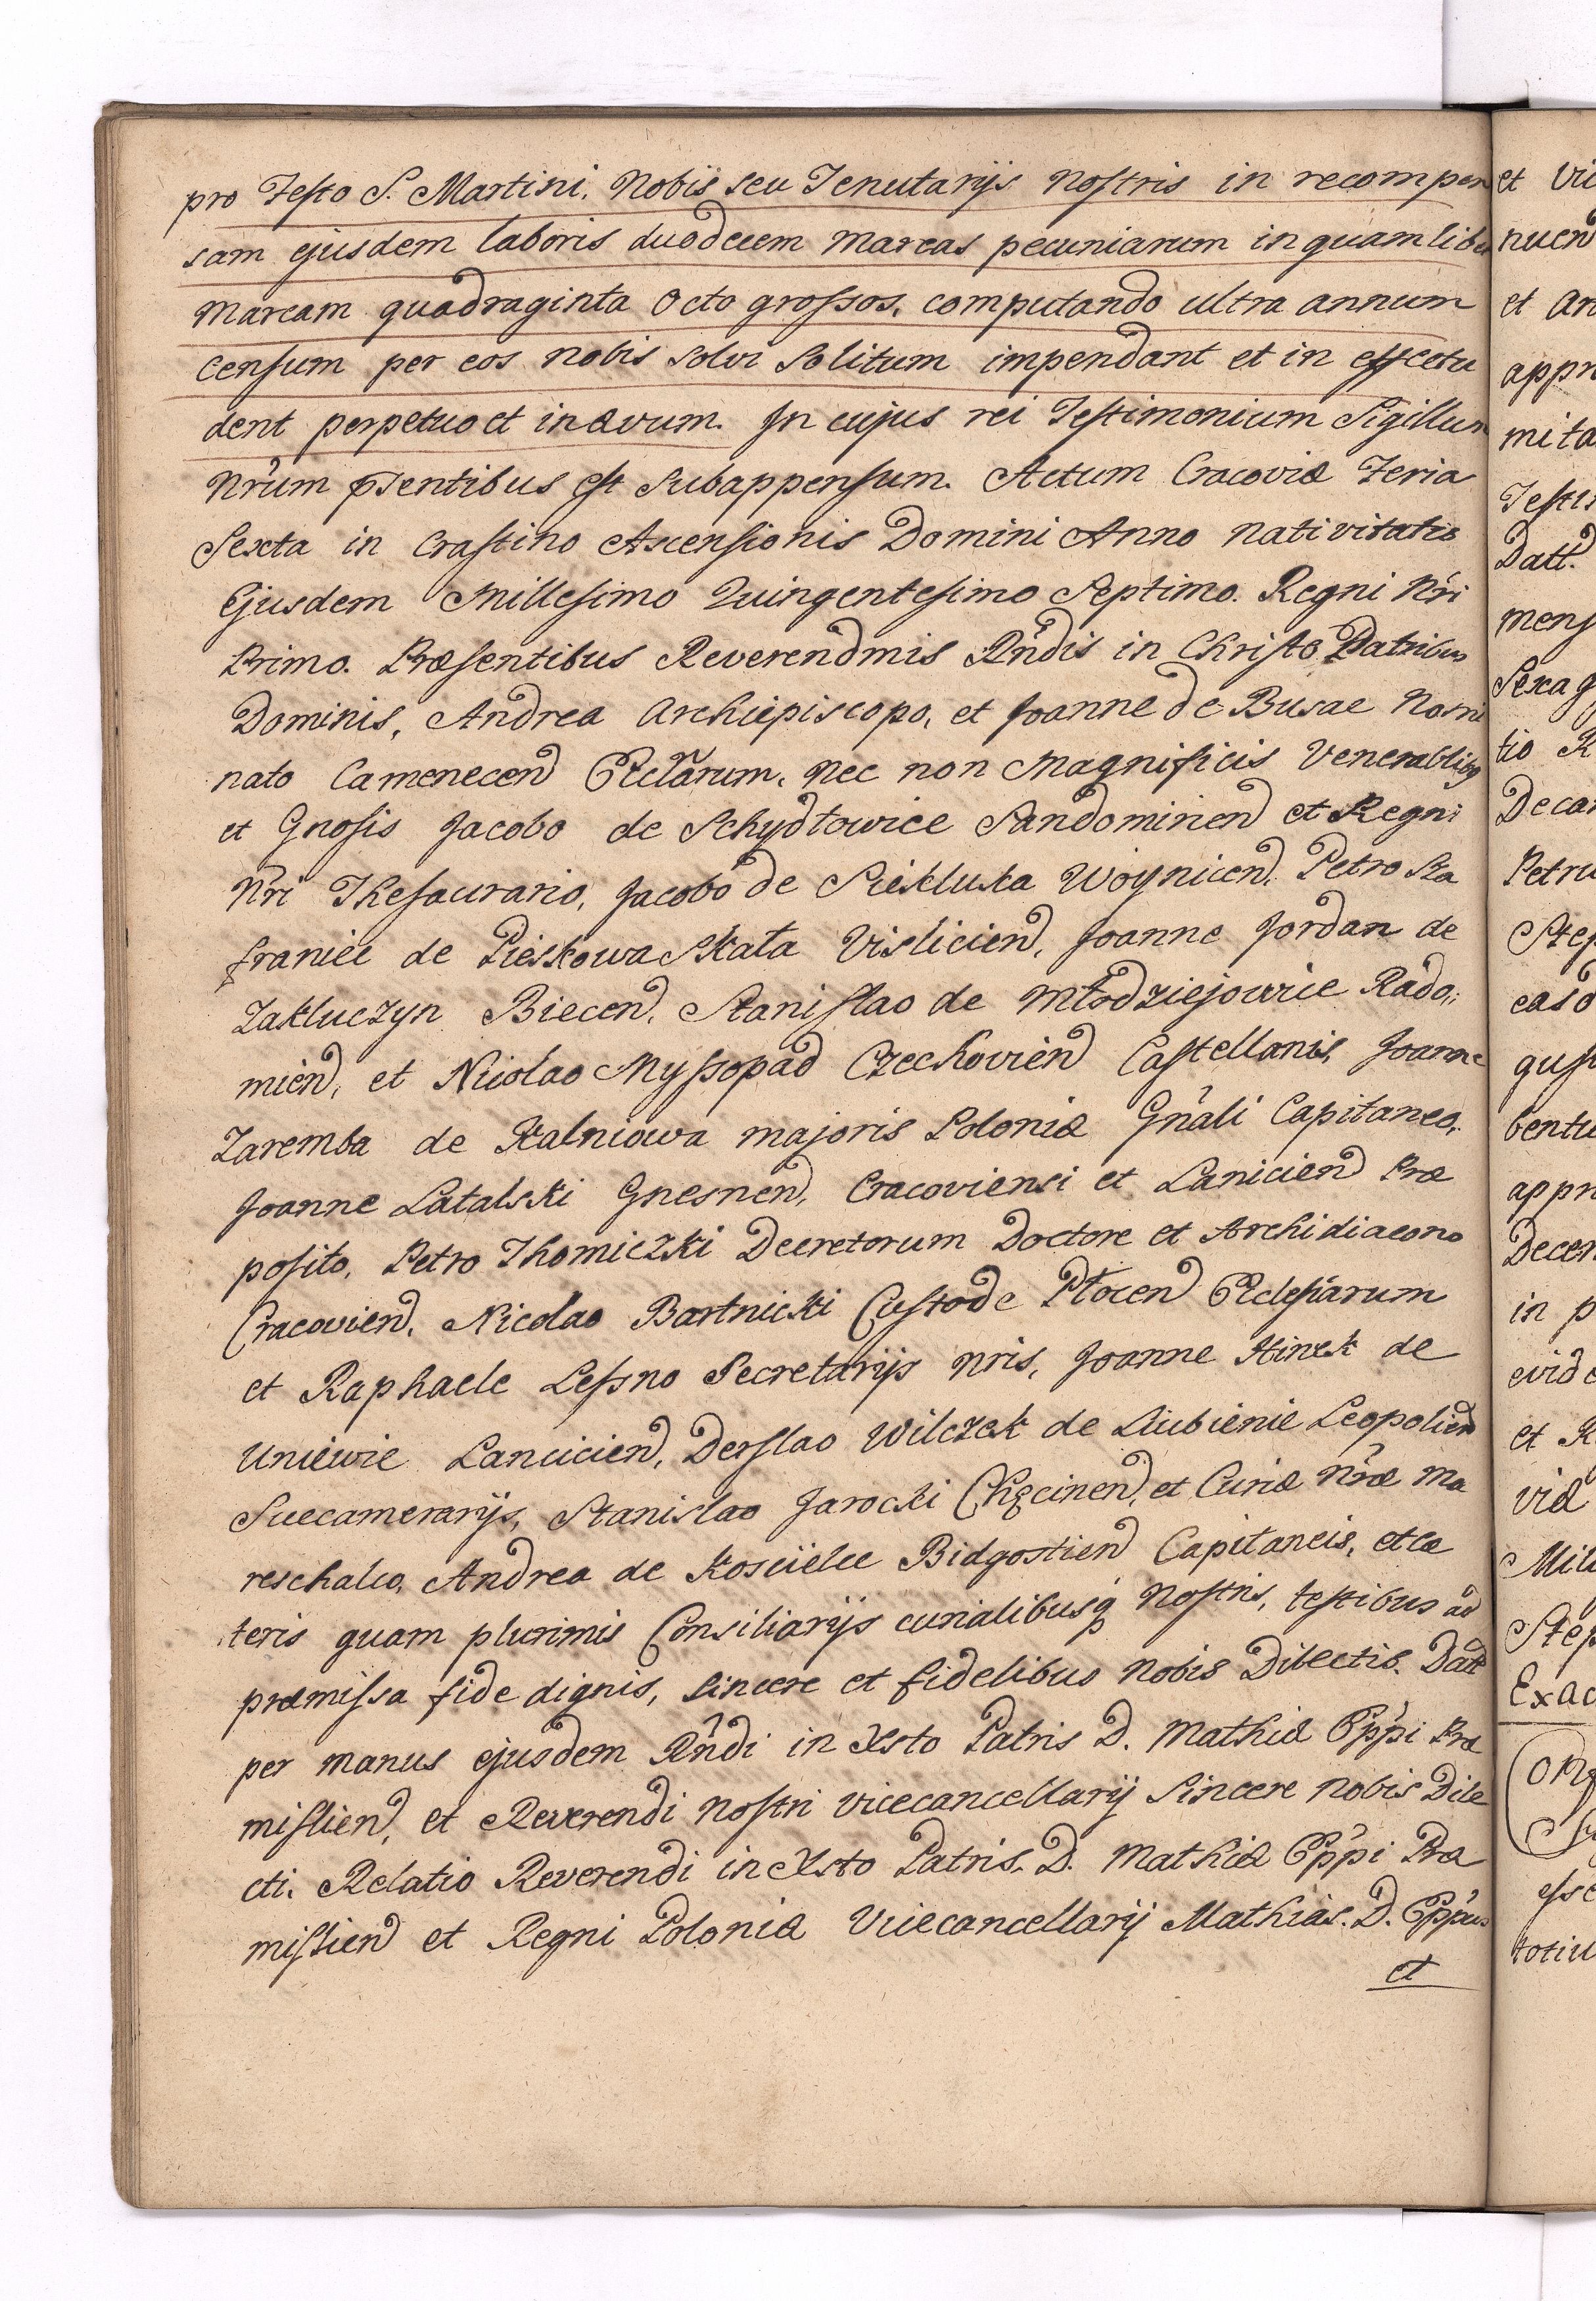 pro Festo S. Martini, Nobis seu Tenutarijs nostris in recompen
sam ejusdem laboris duodecem marcas pecuniarum in quamlibet
marcam quadraginta Octo grossos, computando ultra annum
censum per eos nobis solvi solitum impendant et in effectu
dent perpetuo et in ævum. In cujus rei Testimonium Sigillum
Nrum pntentibus est Subappensum. Actum Cracoviæ Feria
Sexta in Crastino Ascensionis Domini Anno nativitatis
Ejusdem Millesimo Quingentesimo Septimo. Regni Nri
Primo. Præsentibus Reverendmis Rndis in Christo Patribus
Dominis, Andrea Archiepiscopo, et Joanne de Busae Nomi
nato Camenecen Ecclarum, nec non Magnificis Venerablibq
et Gnosis Jacobo de Schydłowice Sandominen et Regni
Nri Thesaurario, Jacobo de Siekluka Woynicen, Petro Sza
franiec de Pieskowa Skała Vislicien, Joanne Jordan de
Zakluczyn Biecen, Stanislao de Młodziejowice Rado,,
mien, et Nicolao Myssopad Czechovien Castellanis, Joanne
Zaremba de Kalniowa majoris Poloniæ Gnali Capitaneo,
Joanne Latalski Gnesnen, Cracoviensi et Lanicien Præ
posito, Petro Thomiczki Decretorum Doctore et Archidiacono
Cracovien, Nicolao Bartnicki Custode Płocen Ecclesiarum
et Raphaele Lessno Secretarijs nris, Joanne Hinek de
Uniewie Lancicien, Derslao Wilczek de Liubienie Leopolien
Succamerarijs, Stanislao Jarocki Chęcinen, et Curiæ Nræ Ma
reschalco, Andrea de Koscielee Bidgostien Capitaneis, et cæ
teris quam plurimis Consiliarijs curialibusq nostris, testibus ad
præmissa fide dignis, sincere et fidelibus nobis Dilectis. Datt
per manus ejusdem Rndi in Xsto Patris D. Mathiæ Eppi Præ
mislien, et Reverendi nostri vicecancellarij Sincere nobis Dile
cti. Relatio Reverendi in Xsto Patris. D. Mathiæ Eppi Præ
mislien et Regni Poloniæ Vicecancellarij Mathias. D. Eppus
et